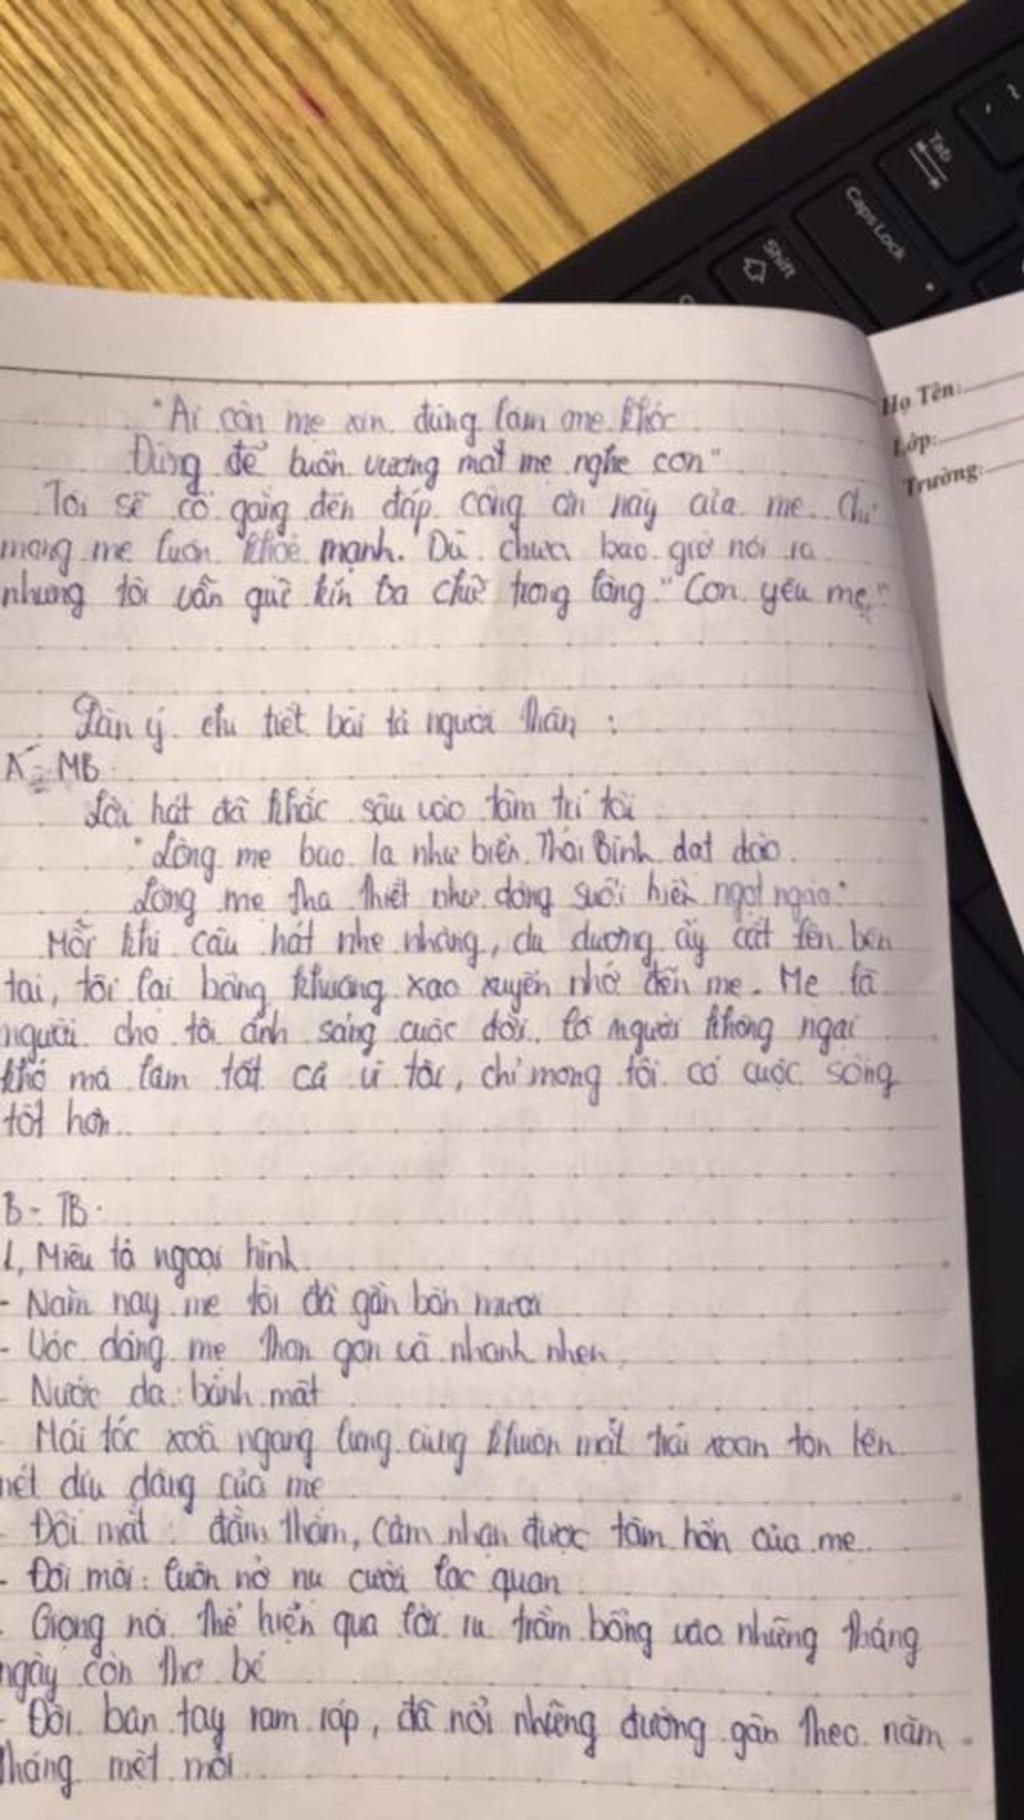 ~
Tab
Caps Lock
Shift
Họ Tên:
Lớp:
Trường:
"Ai còn mẹ xin đừng làm mẹ khóc
Đừng để buồn vương mắt mẹ nghe con"
Tôi sẽ cố gắng đền đáp công ơn này của mẹ. Chỉ
mong mẹ luôn khoẻ mạnh. Dù chưa bao giờ nói ra
nhưng tôi vẫn giữ kín ba chữ trong lòng "Con yêu mẹ"
Dàn ý chi tiết bài tả người thân :
A - MB
Lời hát đã khắc sâu vào tâm trí tôi
"Lòng mẹ bao la như biển Thái Bình dạt dào
Lòng mẹ tha thiết như dòng suối hiền ngọt ngào"
Mỗi khi câu hát nhẹ nhàng, du dương ấy cất lên bên
tai, tôi lại bâng khuâng xao xuyến nhớ đến mẹ. Mẹ là
người cho tôi ánh sáng cuộc đời, là người không ngại
khó mà làm tất cả vì tôi, chỉ mong tôi có cuộc sống
tốt hơn.
B - TB
1, Miêu tả ngoại hình
- Năm nay mẹ tôi đã gần bốn mươi
- Vóc dáng mẹ thon gọn và nhanh nhẹn
- Nước da: bánh mật
- Mái tóc xoã ngang lưng cùng khuôn mặt trái xoan tôn lên
nét dịu dàng của mẹ
- Đôi mắt: đằm thắm, cảm nhận được tâm hồn của mẹ
- Đôi môi: luôn nở nụ cười lạc quan
- Giọng nói thể hiện qua lời ru trầm bổng vào những tháng
ngày còn thơ bé
- Đôi bàn tay ram ráp, đã nổi những đường gân theo năm
tháng mệt mỏi